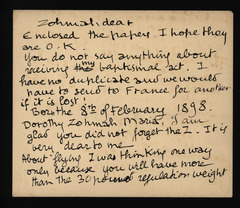 Zohmah dear
Enclosed the papers. I hope they
are O.K.
You do not say anything about
receiving my baptismal act. I
have no duplicate and we would
have to send to France for another
if it is lost!
Dorothe 8th of February 1898.
Dorothy Zohmah Maria, I am
glad you did not forget the Z. It is
very dear to me.
About flying I was thinking one way
only because you will have more
than the 30 pound regulation weight